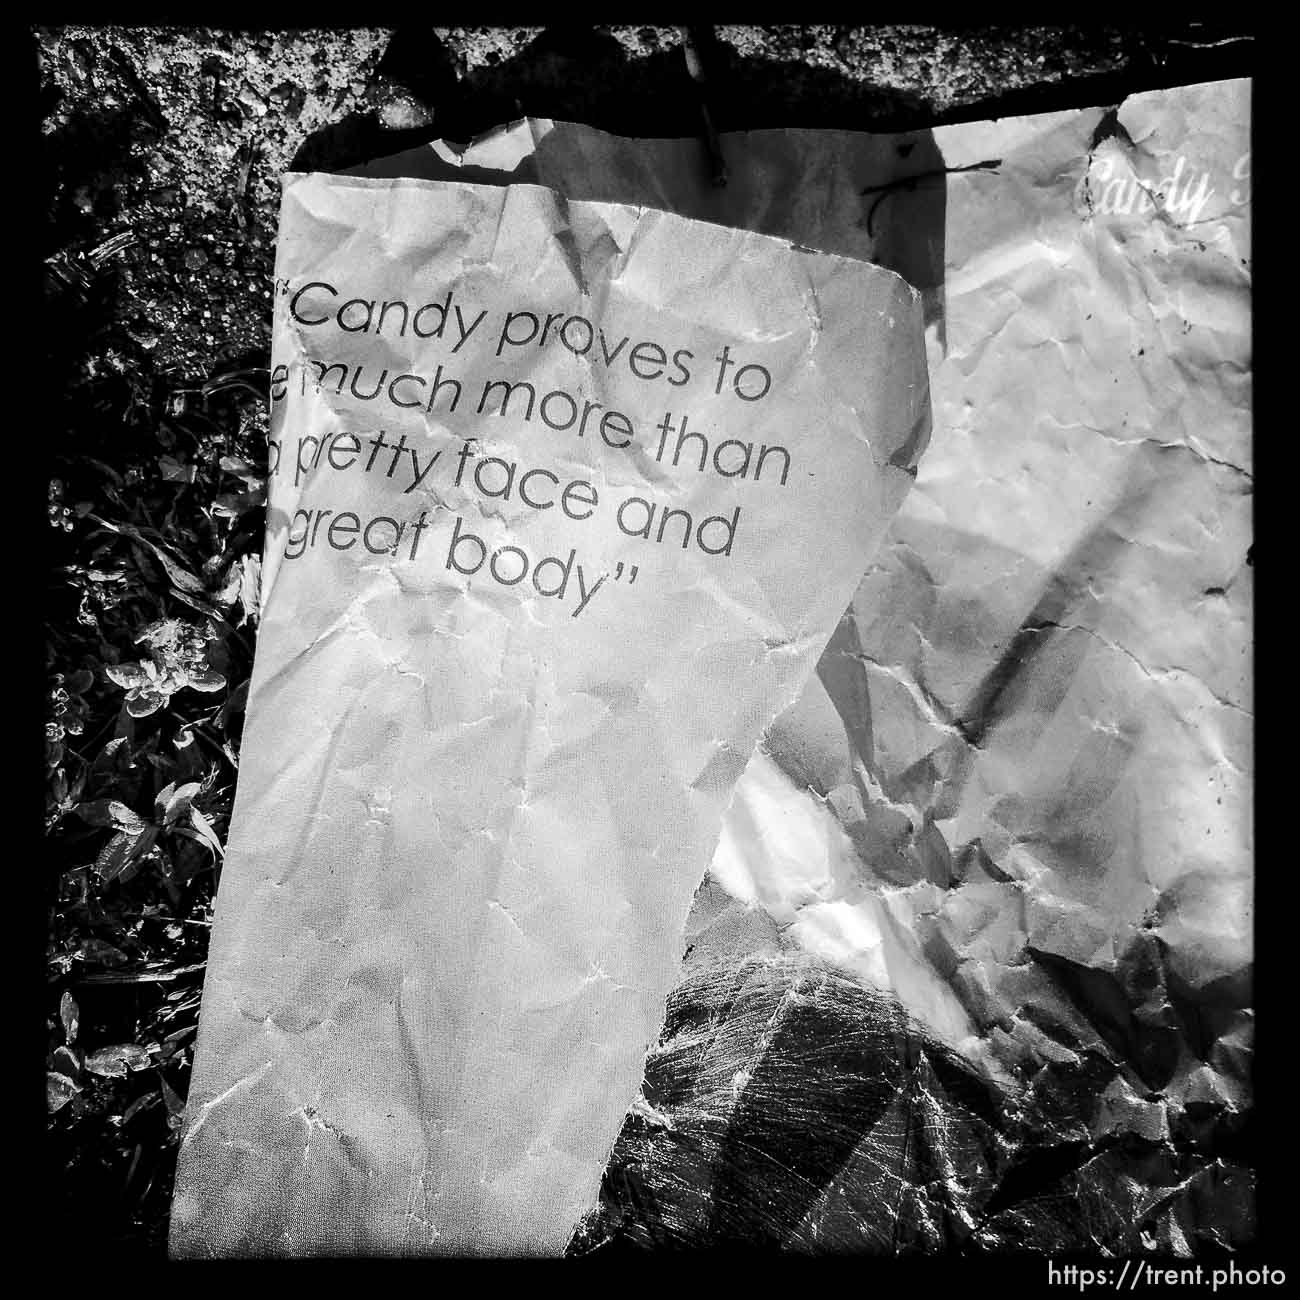 "Candy proves to
e much more than
a pretty face and
great body"
Candy
https://trent.photo